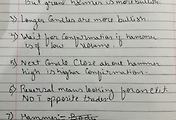 But green Hammer is more bullish
3) Longer Candles are more bullish
4) Wait for Confirmation if hammer
is of low volume.
5) Next Candle Close above hammer
high is higher Confirmation.
6) Reversal means looking for exit
NOT opposite trades
7) Hammer - Body